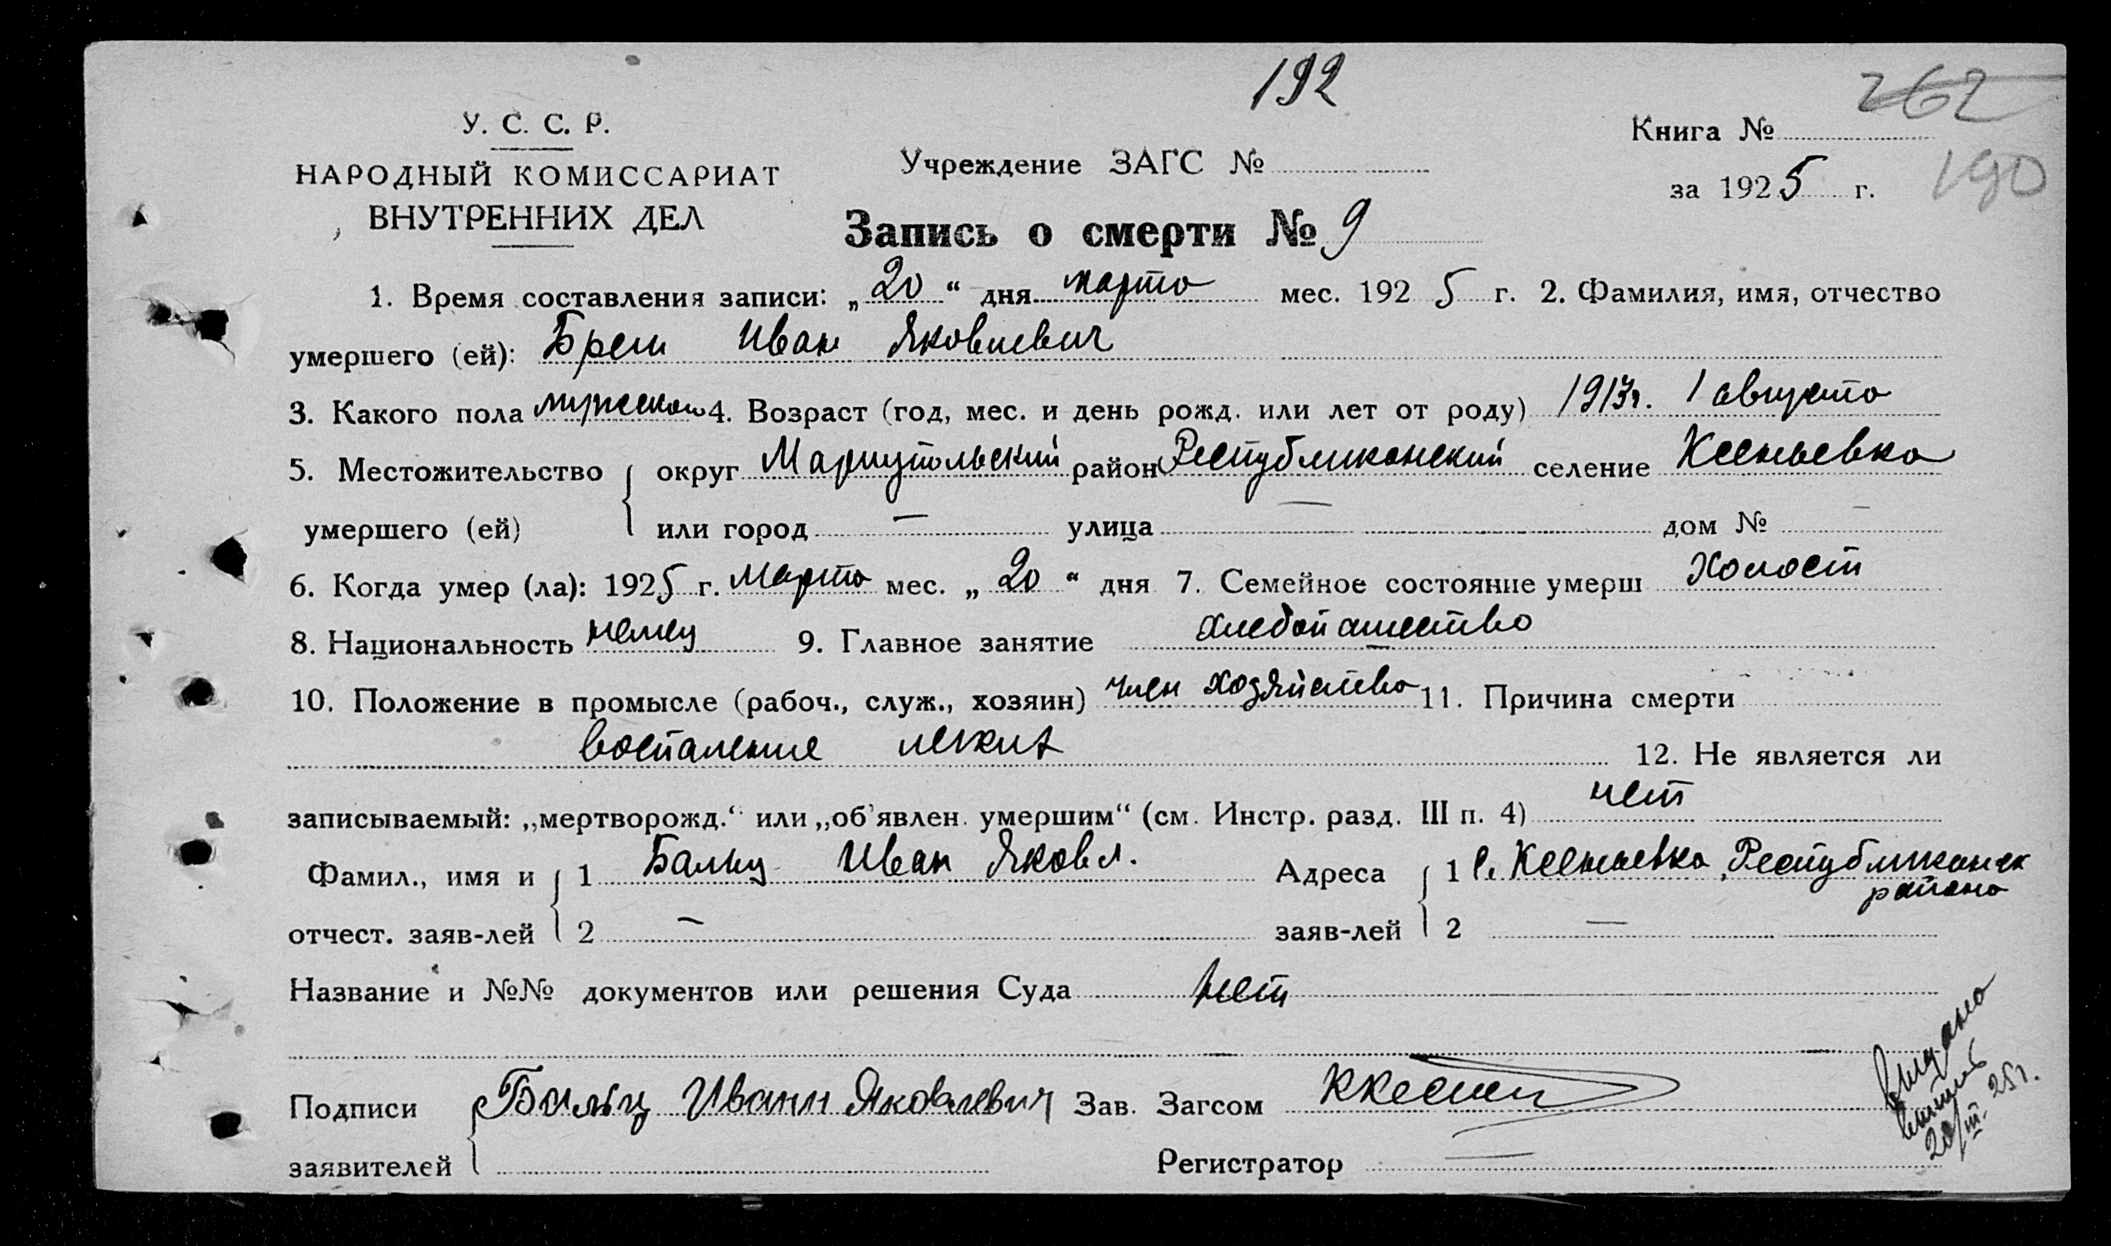 192
262
У. С. С. Р.
Книга №
190
НАРОДНЫЙ КОМИССАРИАТ
ВНУТРЕННИХ ДЕЛ
Учреждение ЗАГС №
за 1925 г.
Запись о смерти № 9
1. Время составления записи: „20“ дня марта мес. 1925 г. 2. Фамилия, имя, отчество
умершего (ей): Иван Яковлевич
3. Какого пола мужеском 4. Возраст (год, мес. и день рожд. или лет от роду) 1913г. 1 августа
5. Местожительство округ Мариупольский район Республиканский селение Ксеньевка
умершего (ей) или город — улица — дом № —
6. Когда умер (ла): 1925 г. марта мес. „20“ дня 7. Семейное состояние умерш холост
8. Национальность немец 9. Главное занятие хлебопашество
10. Положение в промысле (рабоч., служ., хозяин) член хозяйства 11. Причина смерти
воспаление легких 12. Не является ли
записываемый: „мертворожд.“ или „об'явлен. умершим“ (см. Инстр. разд. III п. 4) нет
Фамил., имя и 1 Бальц Иван Яковл. Адреса 1 с. Ксеньевка, Республиканск
района
отчест. заяв-лей 2 — заяв-лей 2 —
Название и №№ документов или решения Суда нет
Подписи Бальц Иван Яковлевич Зав. Загсом
заявителей Регистратор —
Выдана
выпись
20/III 25г.